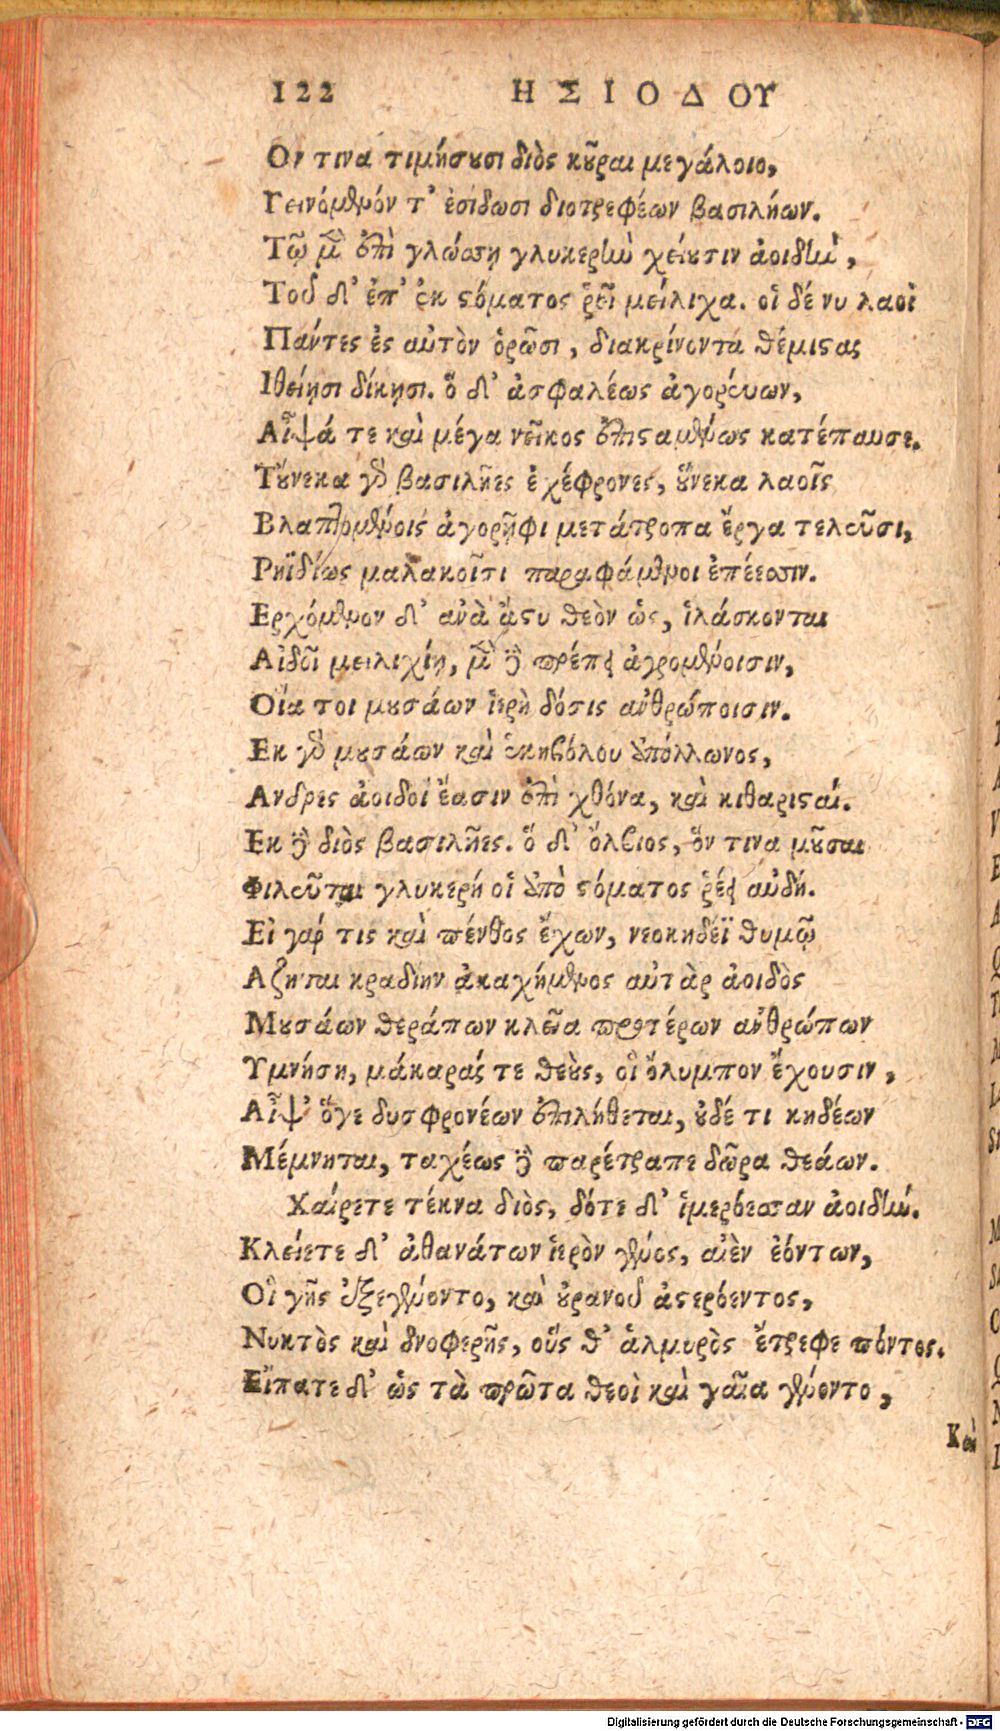 122 ΗΣΙΟΔΟΥ
Ον τινα τιμήσουσι διὸς κοῦραι μεγάλοιο,
Γεινόμενόν τ' ἐσίδωσι διοτρεφέων βασιλήων.
Τῷ μὲν ἐπὶ γλώσσῃ γλυκερὴν χείουσιν ἀοιδὴν,
Τοῦ δ' ἔπε' ἐκ στόματος ῥεῖ μείλιχα. οἱ δέ νυ λαοὶ
Πάντες ἐς αὐτὸν ὁρῶσι, διακρίνοντα θέμιστας
Ιθείῃσι δίκῃσι. ὅ δ' ἀσφαλέως ἀγορεύων,
Αἶψά τε καὶ μέγα νεῖκος ἐπισταμένως κατέπαυσε.
Τούνεκα γὸ βασιλῆες ἐχέφρονες, οὕνεκα λαοῖς
Βλαπτομένοις ἀγορῆφι μετάτροπα ἔργα τελεῦσι,
Ρηϊδίως μαλακοῖσι παραφάμενοι ἐπέεσσιν.
Ερχόμενον δ' ἀνὰ ἄστυ θεὸν ὣς, ἱλάσκονται
Αἰδοῖ μειλιχίῃ, μετὰ δὲ πρέπει ἀγρομένοισιν,
Οἵα τοι μουσάων ἱερὴ δόσις ἀνθρώποισιν.
Εκ γὸ μουσάων καὶ ἑκηβόλου ἀπόλλωνος,
Ανδρες ἀοιδοὶ ἔασιν ἐπὶ χθόνα, καὶ κιθαρισταί.
Εκ δὲ διὸς βασιλῆες. ὅ δ' ὄλβιος, ὅν τινα μοῦσαι
Φιλεῦται γλυκερή οἱ ἀπὸ στόματος ῥέει αὐδή.
Εἰ γάρ τις καὶ πένθος ἔχων, νεοκηδέϊ θυμῷ
Αζηται κραδίην ἀκαχήμενος αὐτὰρ ἀοιδὸς
Μουσάων θεράπων κλεῖα προτέρων ἀνθρώπων
Υμνήσῃ, μάκαράς τε θεοὺς, οἳ ὄλυμπον ἔχουσιν,
Αἶψ' ὅγε δυσφρονέων ἐπιλήθεται, οὐδέ τι κηδέων
Μέμνηται, ταχέως δὲ παρέτραπε δῶρα θεάων.
Χαίρετε τέκνα διὸς, δότε δ' ἱμερόεσσαν ἀοιδήν.
Κλείετε δ' ἀθανάτων ἱερὸν γένος, αἰὲν ἐόντων,
Οἳ γῆς ἐξεγένοντο, καὶ οὐρανοῦ ἀστερόεντος,
Νυκτὸς καὶ δνοφερῆς, οὕς θ' ἁλμυρὸς ἔτρεφε πόντος.
Εἴπατε δ' ὡς τὰ πρῶτα θεοὶ καὶ γαῖα γένοντο,
Καὶ
Digitalisierung gefördert durch die Deutsche Forschungsgemeinschaft - DFG